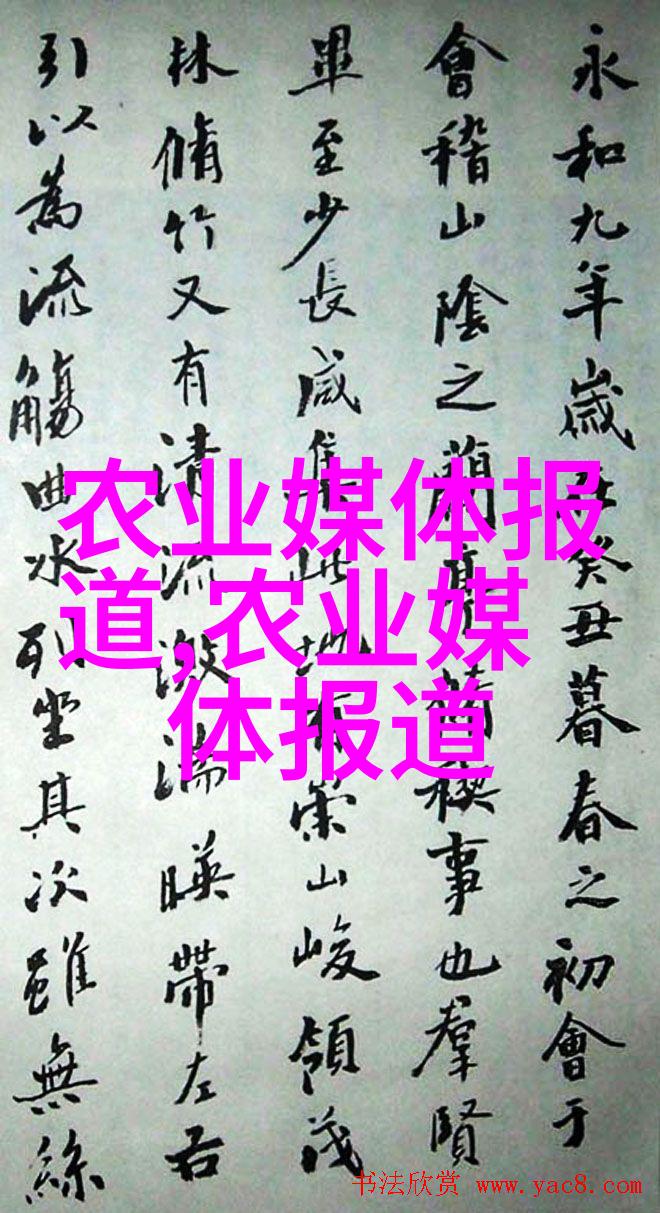 永和九年歲在癸丑暮春之初會于
會稽山陰之蘭亭脩稧事也羣賢
畢至少長咸集此地有崇山峻領茂
林脩竹又有清流激湍暎帶左右
引以為流觴曲水列坐其次雖無絲
农业媒体报
道,农业媒
体报道
书法欣赏 www.yac8.com